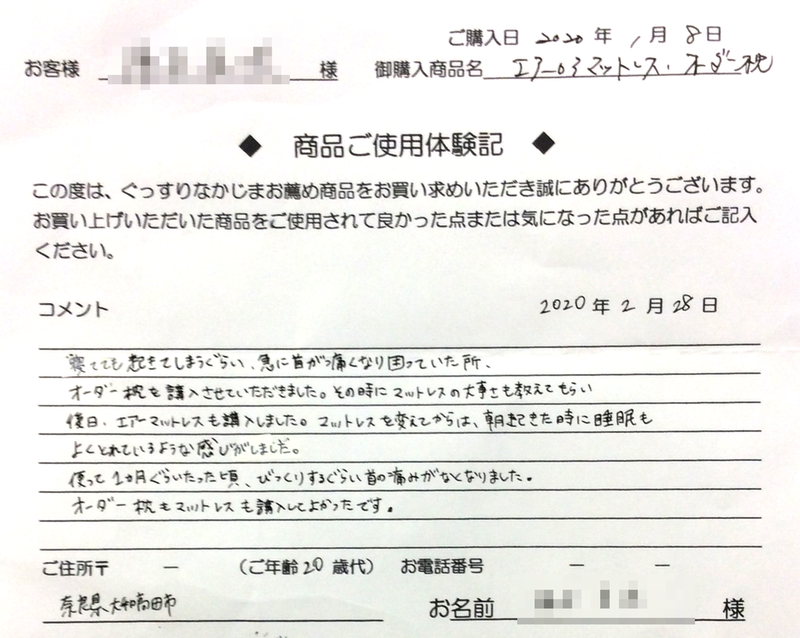 ご購入日 2020 年 1 月 8 日
お客様 様 御購入商品名 エアー03マットレス・オーダー枕
◆ 商品ご使用体験記 ◆
この度は、ぐっすりなかじまお薦め商品をお買い求めいただき誠にありがとうございます。
お買い上げいただいた商品をご使用されて良かった点または気になった点があればご記入
ください。
コメント 2020 年 2 月 28 日
寝てても起きてしまうぐらい、急に首がつ痛くなり困っていた所、
オーダー枕を購入させていただきました。その時にマットレスの大事さも教えてもらい
後日、エアーマットレスも購入しました。マットレスを変えてからは、朝起きた時に睡眠も
よくとれているような感じがしました。
使って1ヵ月ぐらいたった頃、びっくりするぐらい首の痛みがなくなりました。
オーダー枕もマットレスも購入してよかったです。
ご住所〒 ー (ご年齢20歳代) お電話番号 ー ー
奈良県大和高田市
お名前 様